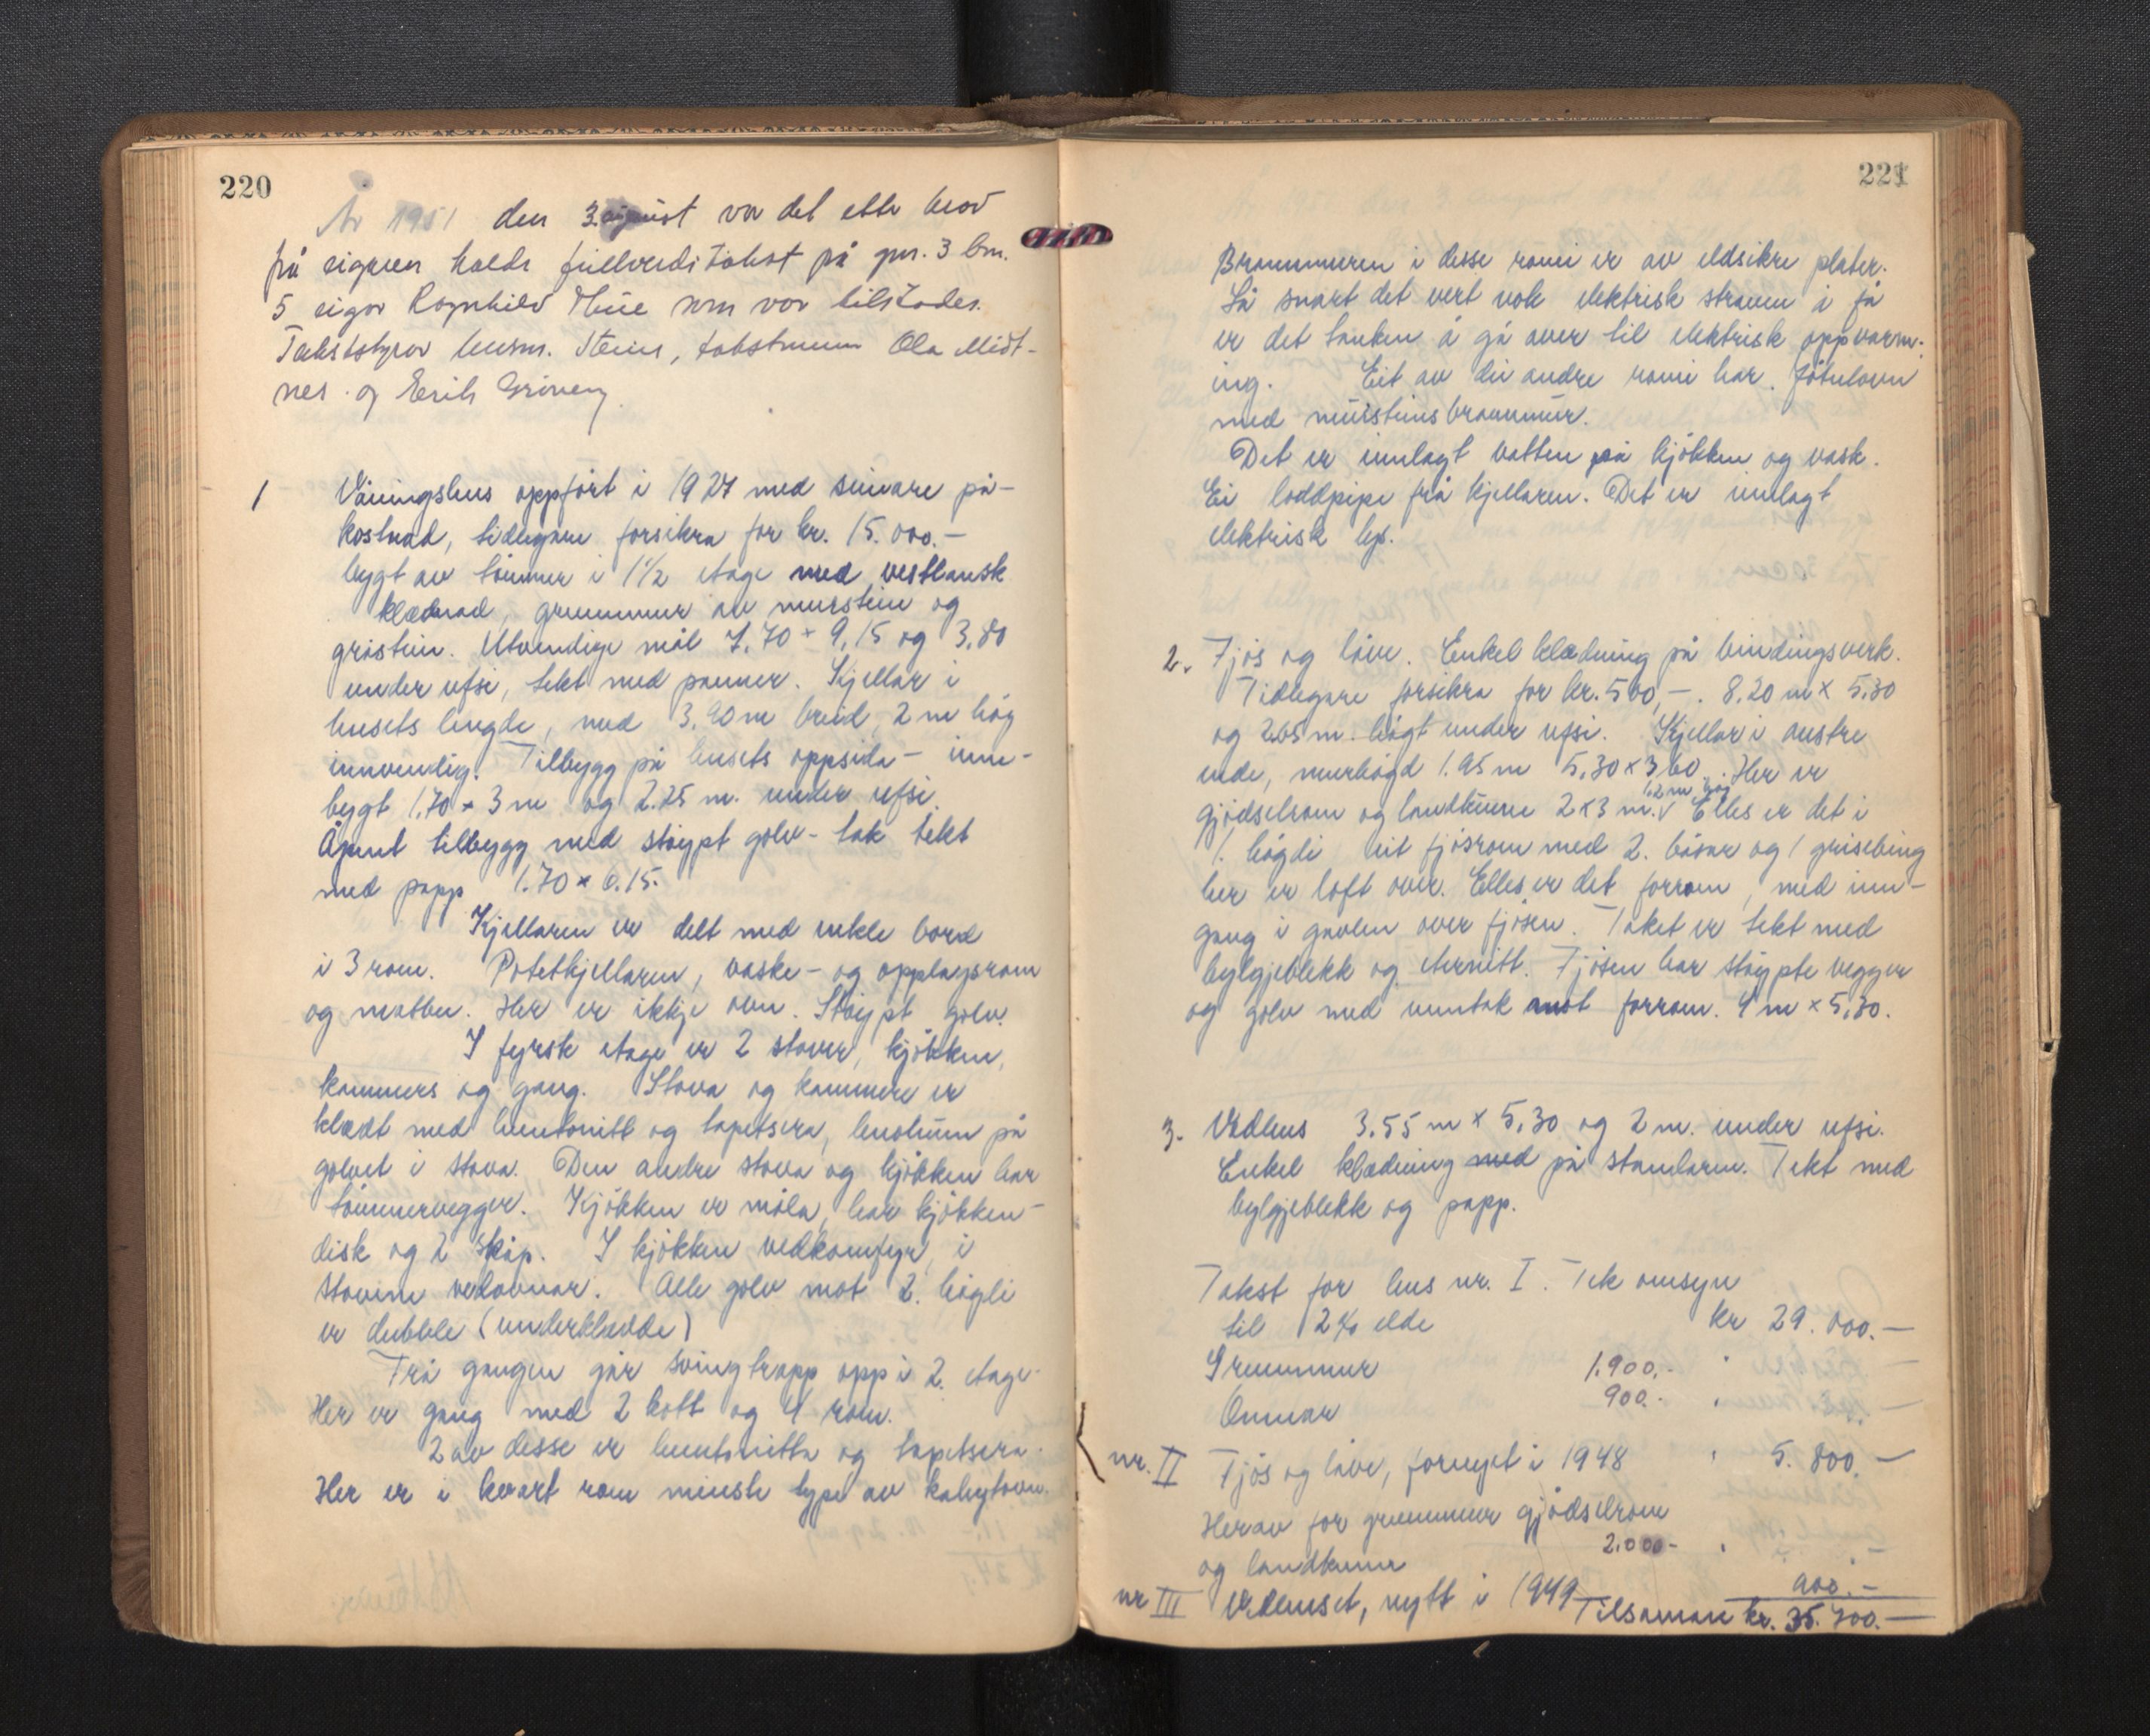 220
År 1951 den 3. august var det etter krav
frå eigaren halde fullverditakst på gnr. 3 bnr.
5 eigar Ragnhild Thue som var tilstades.
Takststyrar lensm. Steine, takstmenn Ola Midt-
nes og Eirik Griveng
1 Våningshus oppført i 1927 med seinare på-
kostnad, tidlegare forsikra for kr. 15.000.-
bygt av tømmer i 1½ etage med vestlansk
klædnad, grunnmur av murstein og
gråstein. Utvendige mål 7.70 × 9,15 og 3,80
under ufsi, tekt med panner. Kjellar i
husets lengde, med 3.90 m breid, 2 m høg
innvendig. Tilbygg på husets oppsida - inne-
bygt 1.70 × 3 m og 2.25 m. under ufsi.
Åpent tilbygg med støypt golv - tak tekt
med papp 1.70 × 6.15.
Kjellaren er delt med enkle bord
i 3 rom. Potetkjellaren, vaske- og opplagsrom
og matbu. Her er ikkje omn. Støypt golv.
I fyrste etage er 2 stover, kjøkken,
kammers og gang. Stova og kammers er
klædt med huntonitt og tapetsera, linoleum på
golvet i stova. Den andre stova og kjøkken har
tømmervegger. Kjøkken er måla, har kjøkken-
disk og 2 skåp. I kjøkken vedkomfyr, i
stovene vedomnar. Alle golv mot 2. høgdi
er dubble (underklædde)
Frå gangen går svingtrapp opp i 2. etage.
Her er gang med 2 kott og 4 rom.
2 av desse er huntonitta og tapetsera.
Her er i kvart rom minste type av kabytomn.
221
Brannmuren i desse romi er av eldsikre plater.
Så snart det vert nok elektrisk straum i få
er det tanken å gå over til elektrisk oppvarm-
ing. Eit av dei andre romi har Jøtulomn
med mursteins brannmur.
Det er innlagt vatten på kjøkken og vask.
Ei loddpipe frå kjellaren. Det er innlagt
elektrisk lys.
2. Fjøs og løve. Enkel klædning på bindingsverk.
Tidlegare forsikra for kr. 500,-. 8.20 m × 5,30
og 2.65 m. høgt under ufsi. Kjellar i austre
ende, murhøgd 1.95 m 5,30 × 3,60. Her er
gjødselrom og landkumme 2 × 3 m. 1,2 m høg Elles er det i
1. høgdi eit fjøsrom med 2. båsar og 1 grisebing
her er loft over. Elles er det forrom, med inn-
gang i gavlen over fjøsen. Taket er tekt med
bylgjeblekk og eternitt. Fjøsen har støypte vegger
og golv med unntak mot forrom. 4 m × 5,30.
3. Vedhus 3.55 m × 5,30 og 2 m. under ufsi.
Enkel klædning med på standaren. Tekt med
bylgjeblekk og papp.
Takst for hus nr. I. Tek omsyn
til 12% elde kr 29.000.-
Grunnmur 1.900,- "
Omnar 900.- "
nr. II Fjøs og løve, fornyet i 1948 " 5.800.-
Herav for grunnmur gjødselrom
og landkumme 2.000- "
nr III Vedhuset, nytt i 1949 900.-
Tilsaman kr. 35.700.-